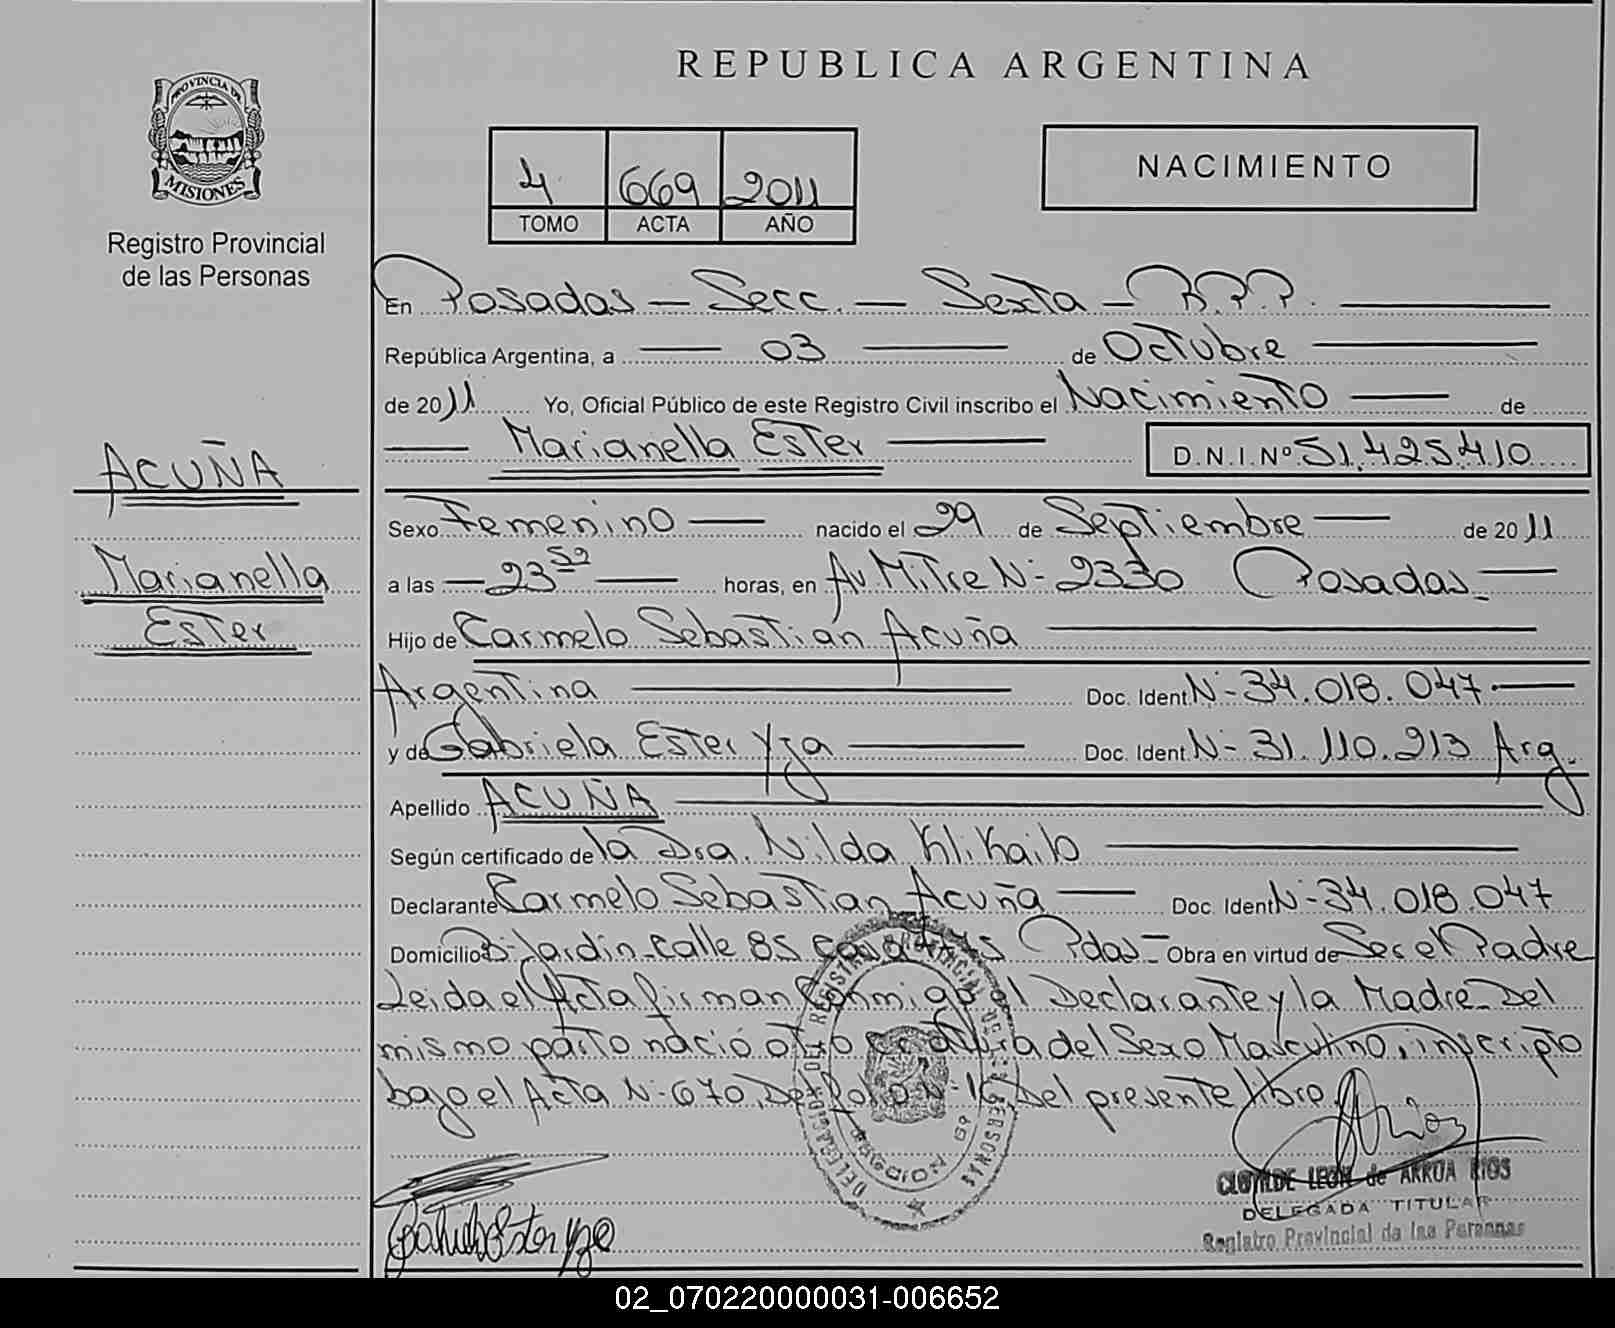 REPUBLICA ARGENTINA
PROVINCIA DE
MISIONES
Registro Provincial
de las Personas
4 669 2011
TOMO ACTA AÑO
NACIMIENTO
En Posadas — Secc. — Sexta — R.P.P.
República Argentina, a — 03 — de Octubre —
de 2011 Yo, Oficial Público de este Registro Civil inscribo el Nacimiento — de
— Marianella Ester — D.N.I.Nº 51.425.410
ACUÑA
Marianella
Ester
Sexo Femenino — nacido el 29 de Septiembre — de 2011
a las — 23 52 — horas, en Av. Mitre N- 2330 Posadas —
Hijo de Carmelo Sebastian Acuña —
Argentina — Doc. Ident. N- 34.018.047 —
y de Gabriela Ester Yza — Doc. Ident. N- 31.110.213 Arg.
Apellido ACUÑA —
Según certificado de la Dra. Nilda Klikailo —
Declarante Carmelo Sebastian Acuña — Doc. Ident N- 34.018.047
Domicilio B- Jardin-Calle 85 casa Pdas — Obra en virtud de Ser el Padre
Leida el Acta firman Conmigo el Declarante y la Madre-Del
mismo parto nació otro criatura del Sexo Masculino, inscripto
bajo el Acta N- 670, De folio N- Del presente libro.
DELEGACION DEL REGISTRO PROVINCIAL DE LAS PERSONAS
CLOTILDE LEON de ARRUA RIOS
DELEGADA TITULAR
Registro Provincial de las Personas
02_070220000031-006652